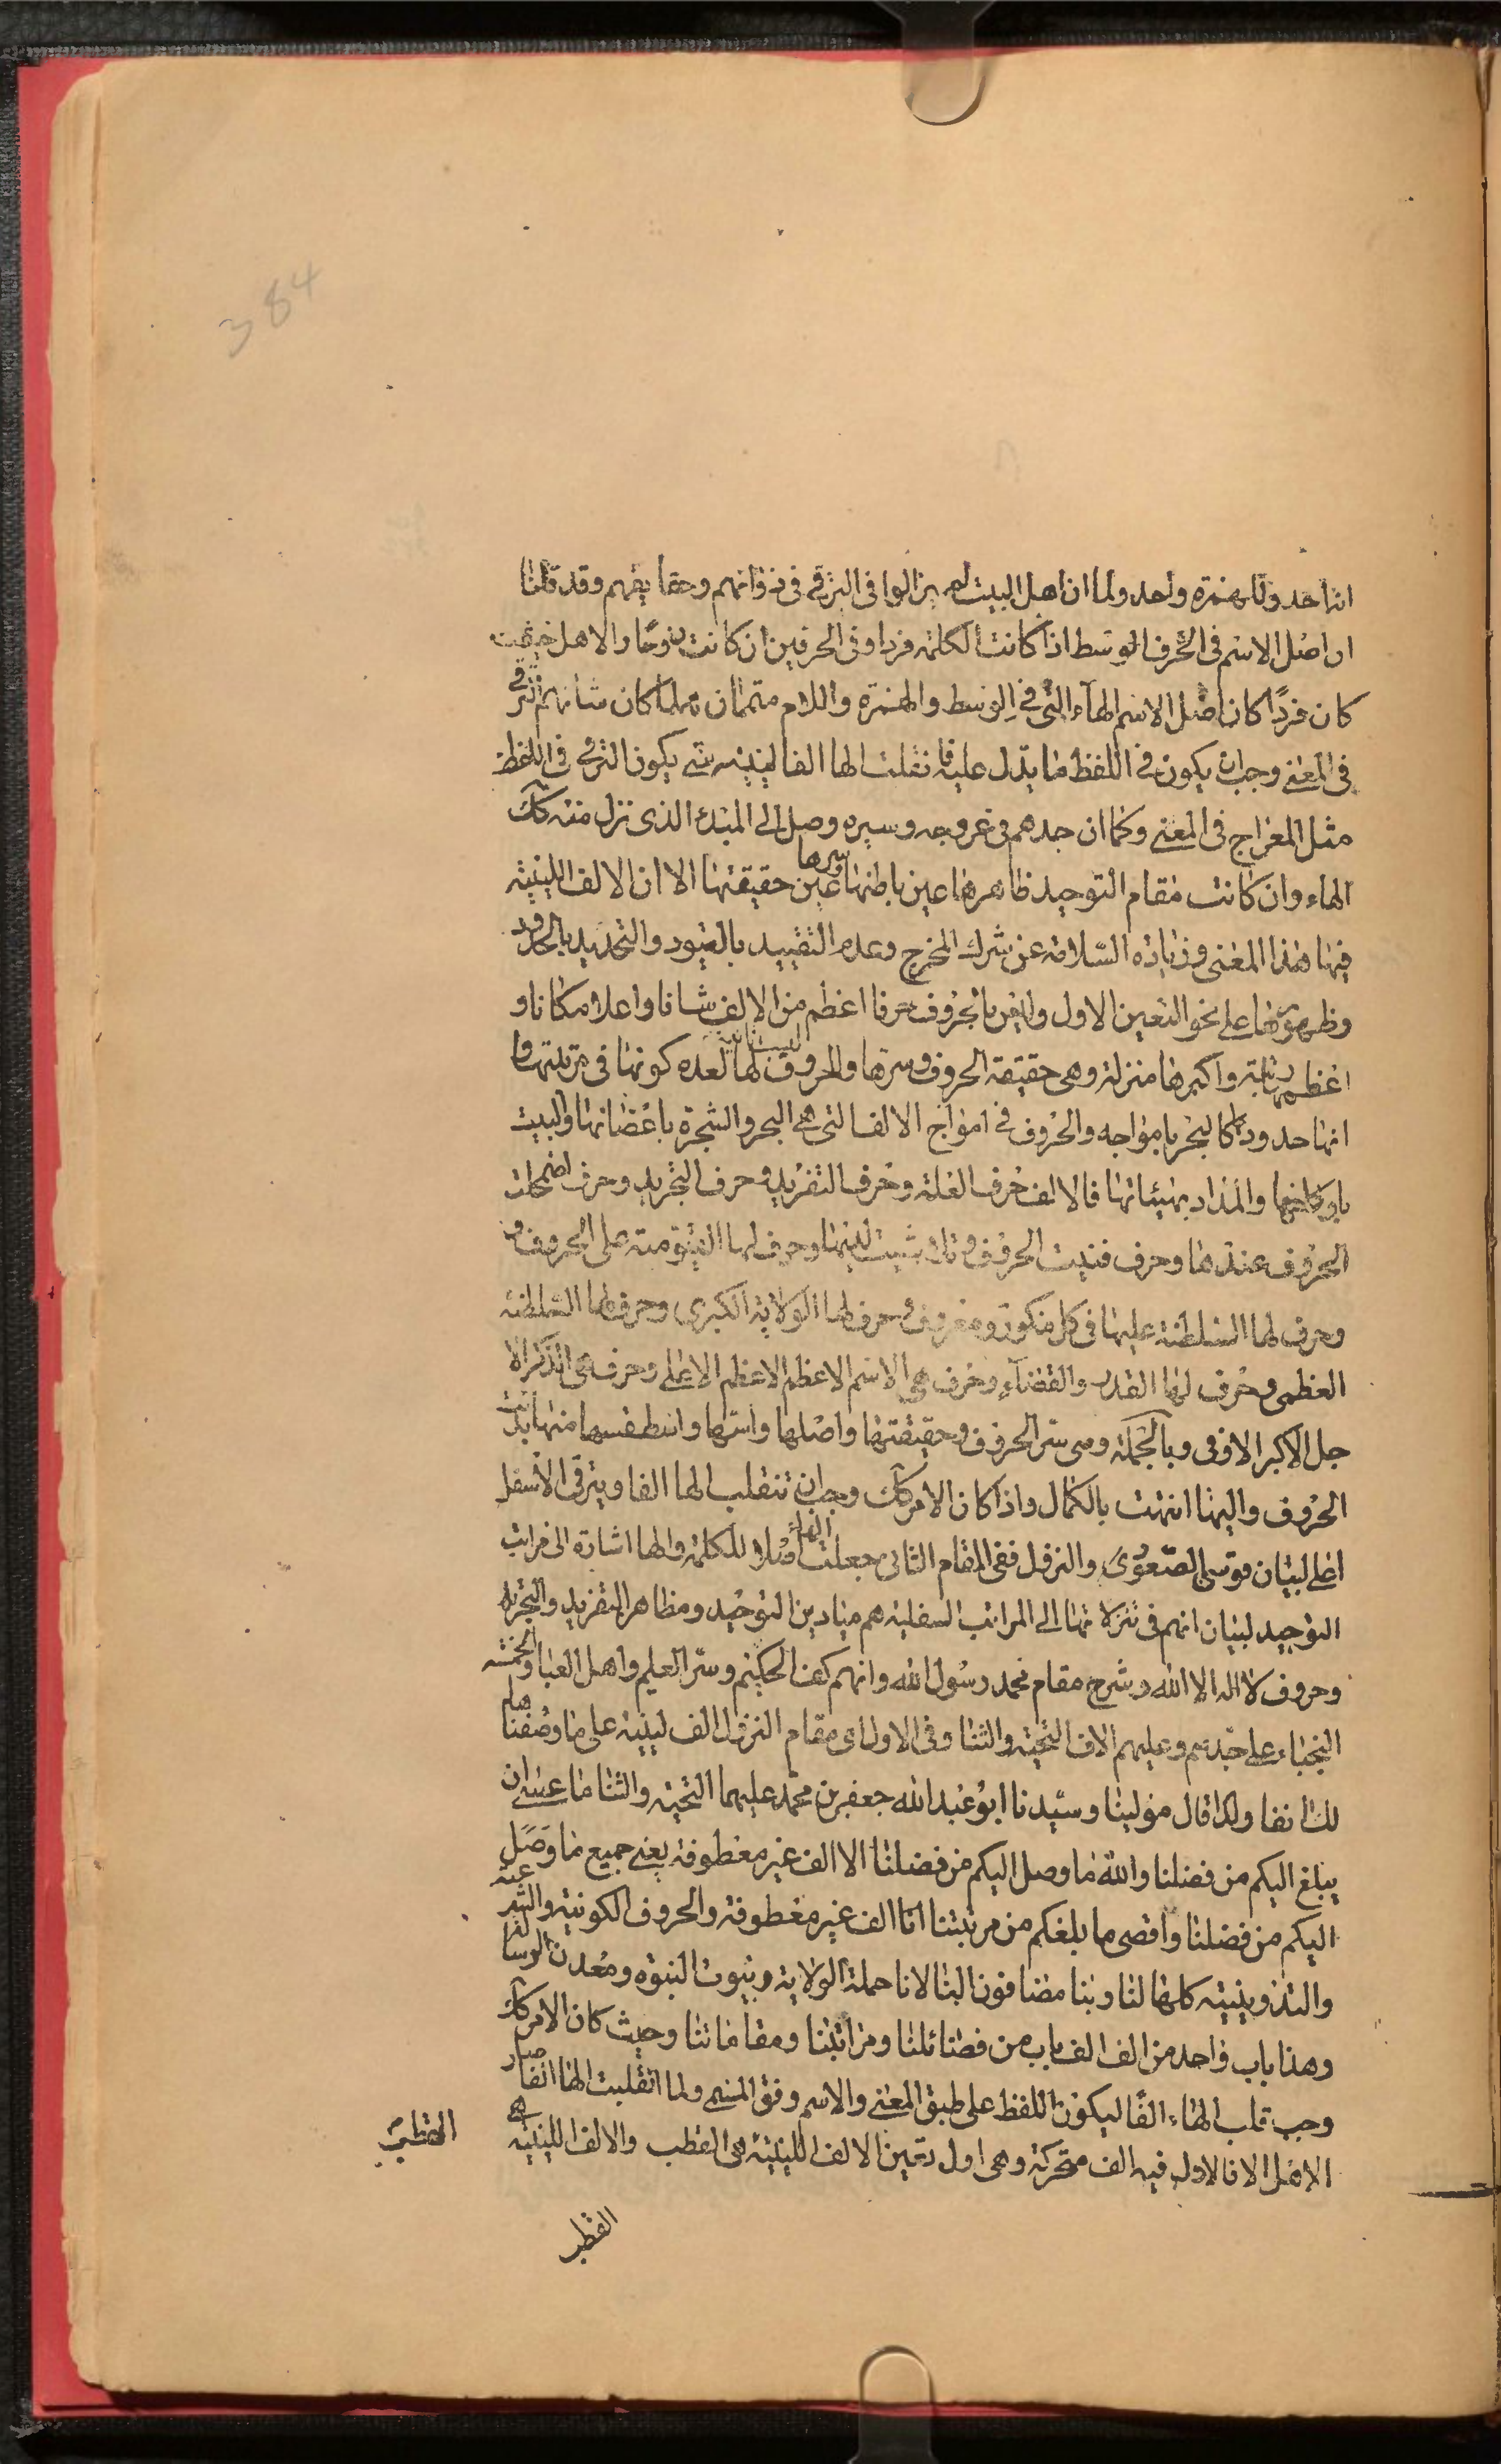 384
انها حد ولا همزة واحد ولما ان اهل البيت لم يزالوا فى الترقى فى ذواتهم وحقايقهم وقد قلنا
ان اصل الاسم فى الحرف الوسط اذا كانت الكلمة فردا وفى الحرفين ان كانت زوجًا والاهل حيث
كان فردًا كان اصل الاسم الهاء التى فى الوسط والهمزة واللام متممان فلما كان شانهم الترقى
فى المعنى وجب ان يكون فى اللفظ ما يدل عليه فانقلبت الها الفا لينية حتى يكون الترقى فى اللفظ
مثل المعراج فى المعنى وكما ان جدهم فى عروجه وسيره وصل الى المبدء الذى نزل منه كك
الهاء وان كانت مقام التوحيد ظاهرها عين باطنها وسرها عين حقيقتها الا ان الالف اللينية
فيها هذا المعنى وزيادة السلامة عن شرك المخرج وعدم التقييد بالقيود والتحديد بالحدود
وظهورها على نحو التعين الاول وليس بالحروف حرفا اعظم من الالف شانا واعلا مكانا و
اعظم رتبة واكبرها منزلة وهى حقيقة الحروف وسرها والحروف ليست لها لعدم كونها فى مرتبتها وا
انها حدودها كالبحر بامواجه والحروف فى امواج الالف التى هى البحر والشجرة باغضانها والبيت
باركانها والمداد بهيئاتها فالالف حرف العلة وحرف التفريد وحرف التجريد وحرف اضمحلت
الحروف عندها وحرف فنيت الحروف وتلاشيت لديها وحرف لها القيومية على الحروف
وحرف لها السلطنة عليها فى كل منكور ومعروف وحرف لها الولاية الكبرى وحرف لها السلطنة
العظمى وحرف لها القدر والقضاء وحرف هى الاسم الاعظم الاعظم الاعلى وحرف هى الذكر الا
جل الاكبر الاوفى وبالجملة وهى سر الحروف وحقيقتها واصلها واسها واسطقسها منها بدئت
الحروف واليها انتهت بالكمال واذا كان الامر كك وجب ان تنقلب الها الفا ويترقى الاسفل
اعلى لبيان قوسى الصعودى والنزول ففى المقام الثانى جعلت الهاء اصلا للكلمة والها اشارة الى مراتب
التوحيد لبيان انهم فى تنزلاتها الى المراتب السفلية هم ميادين التوحيد ومظاهر التفريد والتجريد
وحروف لا اله الا الله وشرح مقام محمد رسول الله وانهم كهف الحكيم وسر العليم واهل العبا والخمسة
النجباء على جدهم وعليهم الاف التحية والثنا وفى الاول اى مقام النزول الف لينية على ما وصفنا
لك انفا ولذا قال مولينا وسيدنا ابو عبد الله جعفر بن محمد عليهما التحية والثنا ما عسى ان
يبلغ اليكم من فضلنا والله ما وصل اليكم من فضلنا الا الف غير معطوفة يعنى جميع ما وصل
اليكم من فضلنا واقصى ما بلغكم من مرتبتنا انا الف غير معطوفة والحروف الكونية
والتدوينية كلها لنا وبنا مضافون الينا لانا حملة الولاية وبيوت النبوة ومعدن الرسالة
وهذا باب واحد من الف الف باب من فضائلنا ومراتبنا ومقاماتنا وحيث كان الامر كك
وجب قلب الهاء الفًا ليكون اللفظ على طبق المعنى والاسم وفق المسمى ولما انقلبت الها الفا صار
الاهل الا فالاول فيه الف متحركة وهى اول تعين الالف اللينية هى القطب والالف اللينية هى
القطب